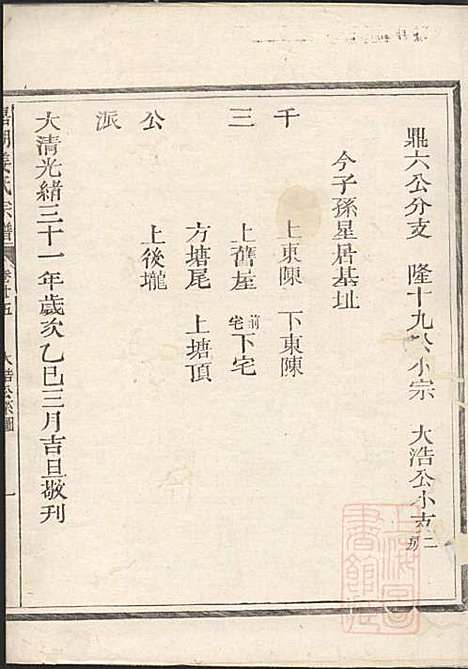 鼎六公分支 隆十九公小宗 大浩公小支二房
今子孫星居基址
千 上東陳 下東陳
三 上舊屋 前宅下宅
方塘尾 上塘頂
公 上後壠
派
大清光緒三十一年歲次乙巳三月吉旦敬刊
姜氏宗譜 卷廿五 大浩公系圖 一
上海圖書館藏